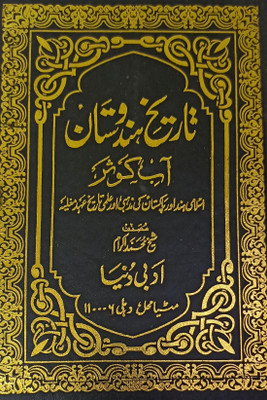 تاریخ ہندوستان
آبِ کوثر
اسلامی ہند اور پاکستان کی مذہبی اور علمی تاریخ عہد مغلیہ
مصنف
شیخ محمد اکرام
ادبی دُنیا
مٹیا محل، دہلی ۱۱۰۰۰۶